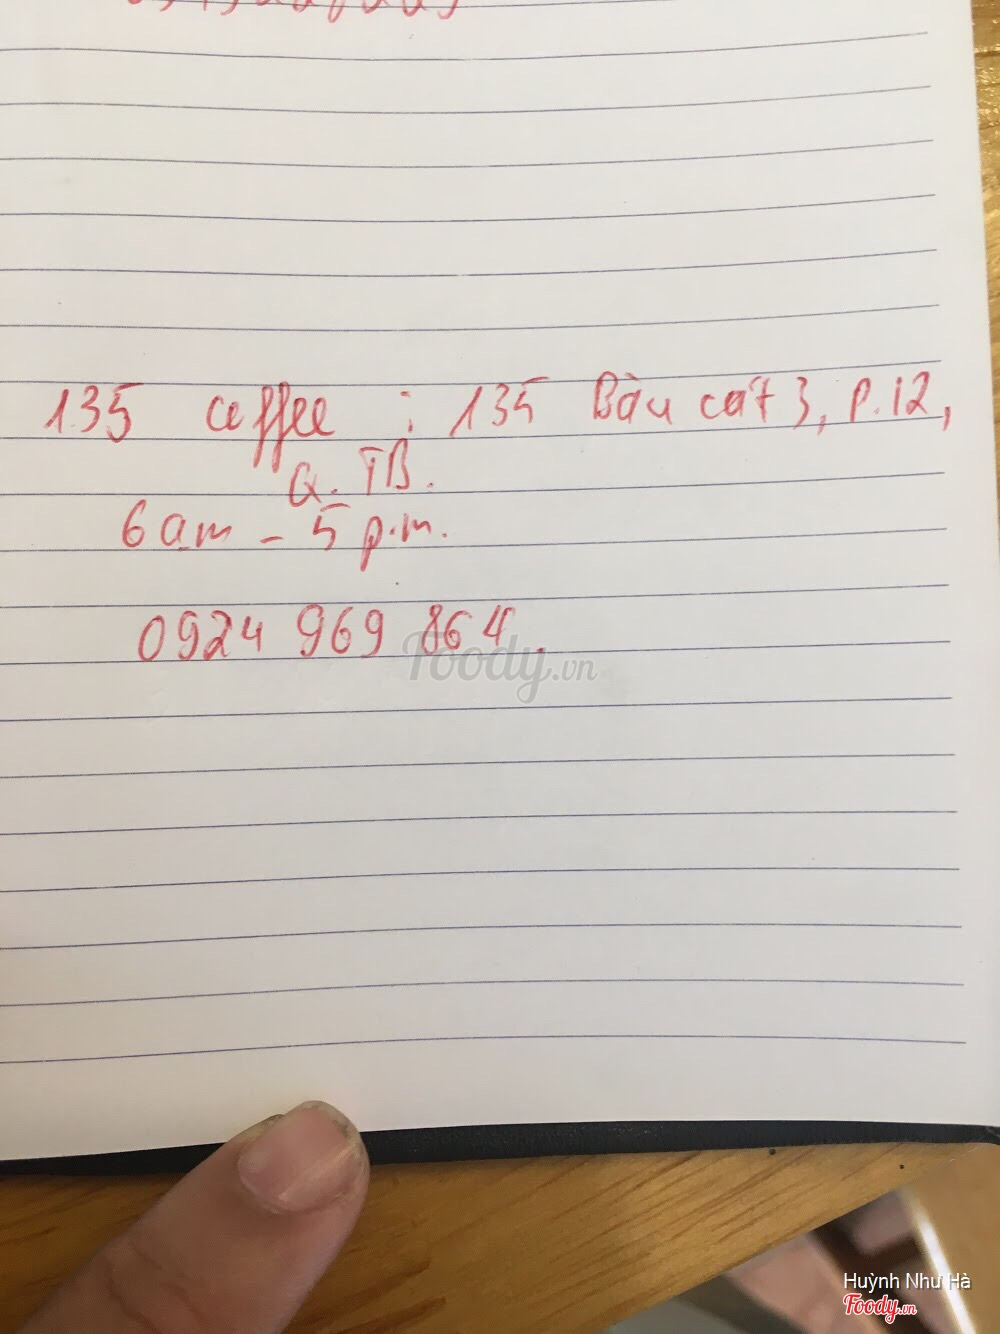 135 coffee : 135 Bàu cát 3, P.12,
Q. TB.
6 am - 5 p.m.
0924 969 864.
Foody.vn
Huỳnh Như Hà
Foody.vn